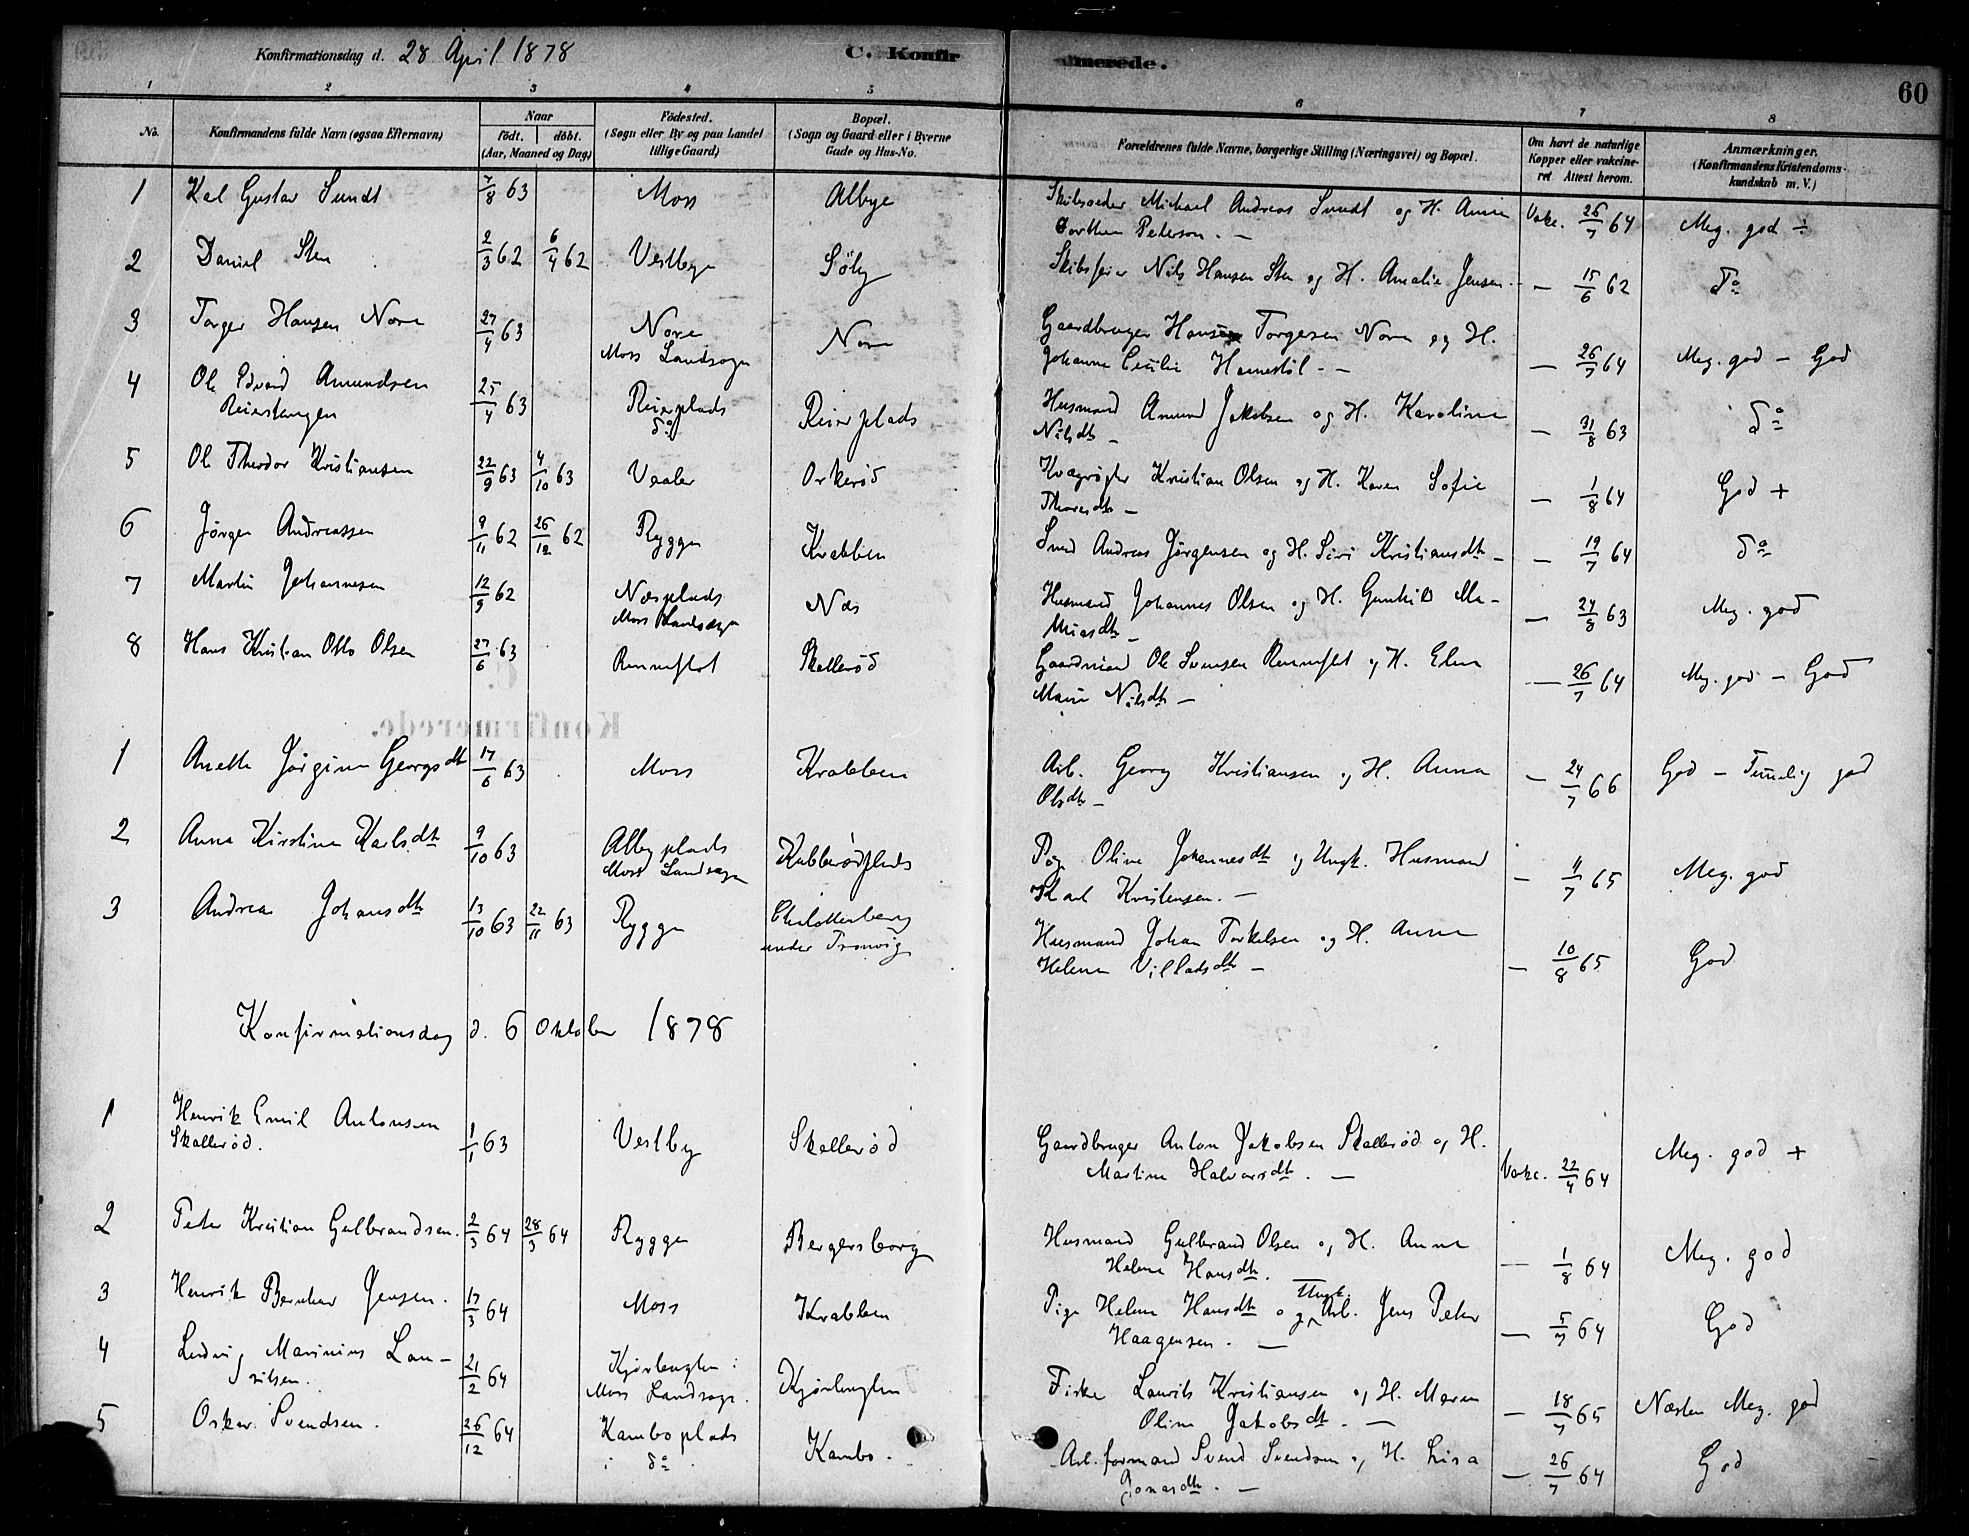 Konfirmationsdag d. 28 April 1878 C. Konfirmerede. 60
1 2 3 4 5 6 7 8
No. Konfirmandens fulde Navn (ogsaa Efternavn) Naar födt. döbt. (Aar, Maaned og Dag) Födested. (Sogn eller By og paa Landet tillige Gaard) Bopæl. (Sogn og Gaard eller i Byerne Gade og Hus-No. Forældrenes fulde Navne, borgerlige Stilling (Næringsvei) og Bopæl. Om havt de naturlige Kopper eller vakcineret. Attest herom. Anmærkninger. (Konfirmandens Kristendomskundskab m. V.)
1 Kal Gustav Sundt 7/8 63 Moss Albye Michael Andreas Sundt og H. Anne Vakc. 26/7 64 Meg. god ÷
Dorthea Peterson. —
2 Daniel Sten 2/3 62 6/4 62 Vestbye Söby Nils Hansen Sten og H. Amalie Jensen. — 15/6 62 do
3 Torger Hansen Nore 27/4 63 Nore Nore Gaardbruger Hans Torgesen Nore og H.
Moss Landsogn Johanne Cecilie — — 26/7 64 Meg. god — God
4 Ole Edvard Amundsen 25/4 63 Reierplads Reierplads Husmand Amund Jakobsen og H. Karoline
Reierstangen do Nilsdtr — — 31/8 63 do
5 Ole Theodor Kristiansen 22/9 63 4/10 63 Vaaler Orkeröd Kristian Olsen og H. Karen Sofie
— 1/8 64 God +
6 Jörgen Andreassen 9/11 62 26/12 62 Rygge Krabben Smed Andreas Jörgensen og H. Siri Kristiansdtr — — 19/7 64 do
7 Martin Johannesen 12/9 62 Næsplads Næs Husmand Johannes Olsen og H. Gunhild Ma-
Moss Landsogn thiasdtr — — 24/8 63 Meg. god
8 Hans Kristian Otto Olsen 27/6 63 Skalleröd Gaardmand Ole Svensen og H. Elen
Marie Nilsdtr — — 26/7 64 Meg. god — God
1 Anette Jörgine Georgsdtr 17/6 63 Moss Krabben Arb. Georg Kristiansen og H. Anna
Olsdtr — — 24/7 66 God — Temelig god
2 Anna Kirstine Karlsdtr 9/10 63 Albyplads Kubberödplads Pige Oline Johannesdtr og Ungk. Husmand
Moss Landsogn Karl Kristensen. — — 11/7 65 Meg. god
3 Andrea Johansdtr 13/10 63 22/11 63 Rygge Charlottenberg Husmand Johan Torkelsen og H. Anne
under Tronvig Helene Villadsdtr — — 10/8 65 God
Konfirmationsdag d. 6 Oktober 1878
1 Henrik Emil Antonsen 1/1 63 Vestby Skalleröd Gaardbruger Anton Jakobsen Skalleröd og H.
Skalleröd. Martine Halvorsdtr. — Vakc. 22/4 64 Meg. god +
2 Peter Kristian Gulbrandsen. 2/3 64 28/3 64 Rygge Bergersborg Husmand Gulbrand Olsen og H. Anne
Helene Hansdtr. — 1/8 64 Meg. god
3 Henrik Bernhar Jensen. 17/3 64 Moss Krabben Pige Helene Hansdtr og Ungk. Arb. Jens Peter
Haagensen. — — 5/7 64 God
4 Ludvig Marinius Lau- 21/2 64 Kjörlenglen i Kjörlenglen Fisker Laurits Kristiansen og H. Maren
ritsen. Moss Landsogn. Oline Jakobsdtr. — — 18/7 65 Næsten Meg. god
5 Oskar Svendsen. 26/12 64 Kamboplads Kambo. Arb. formand Svend Svendsen og H. Lisa
i do Jonasdtr. — — 26/7 64 God